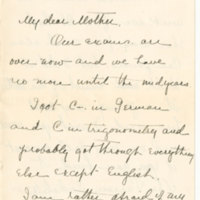 My dear Mother.
Our exams. are
over now and we have
no more until the midyears
I got C- in German
and C in trigonometry and
probably got through everything
else except English.
I am rather afraid of my